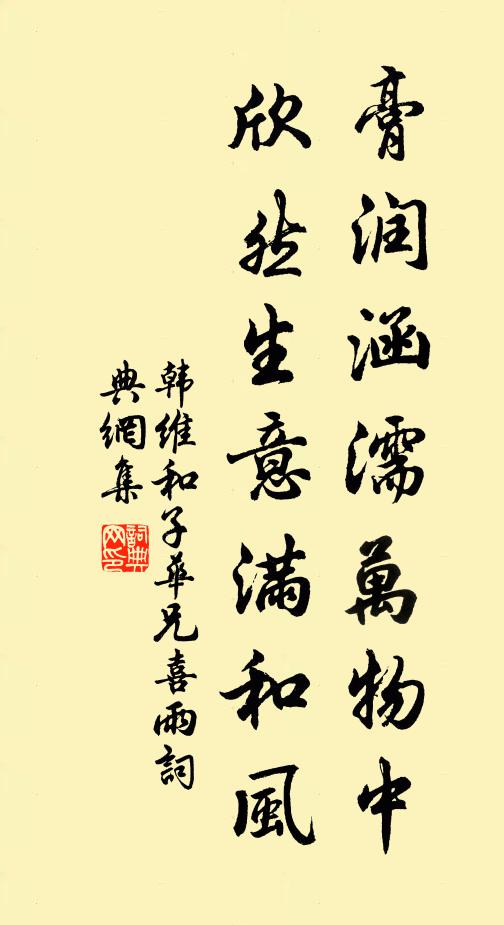 膏润涵濡萬物中
欣然生意满和風
韩维和子華兄喜雨詞
典網集
詞典網印